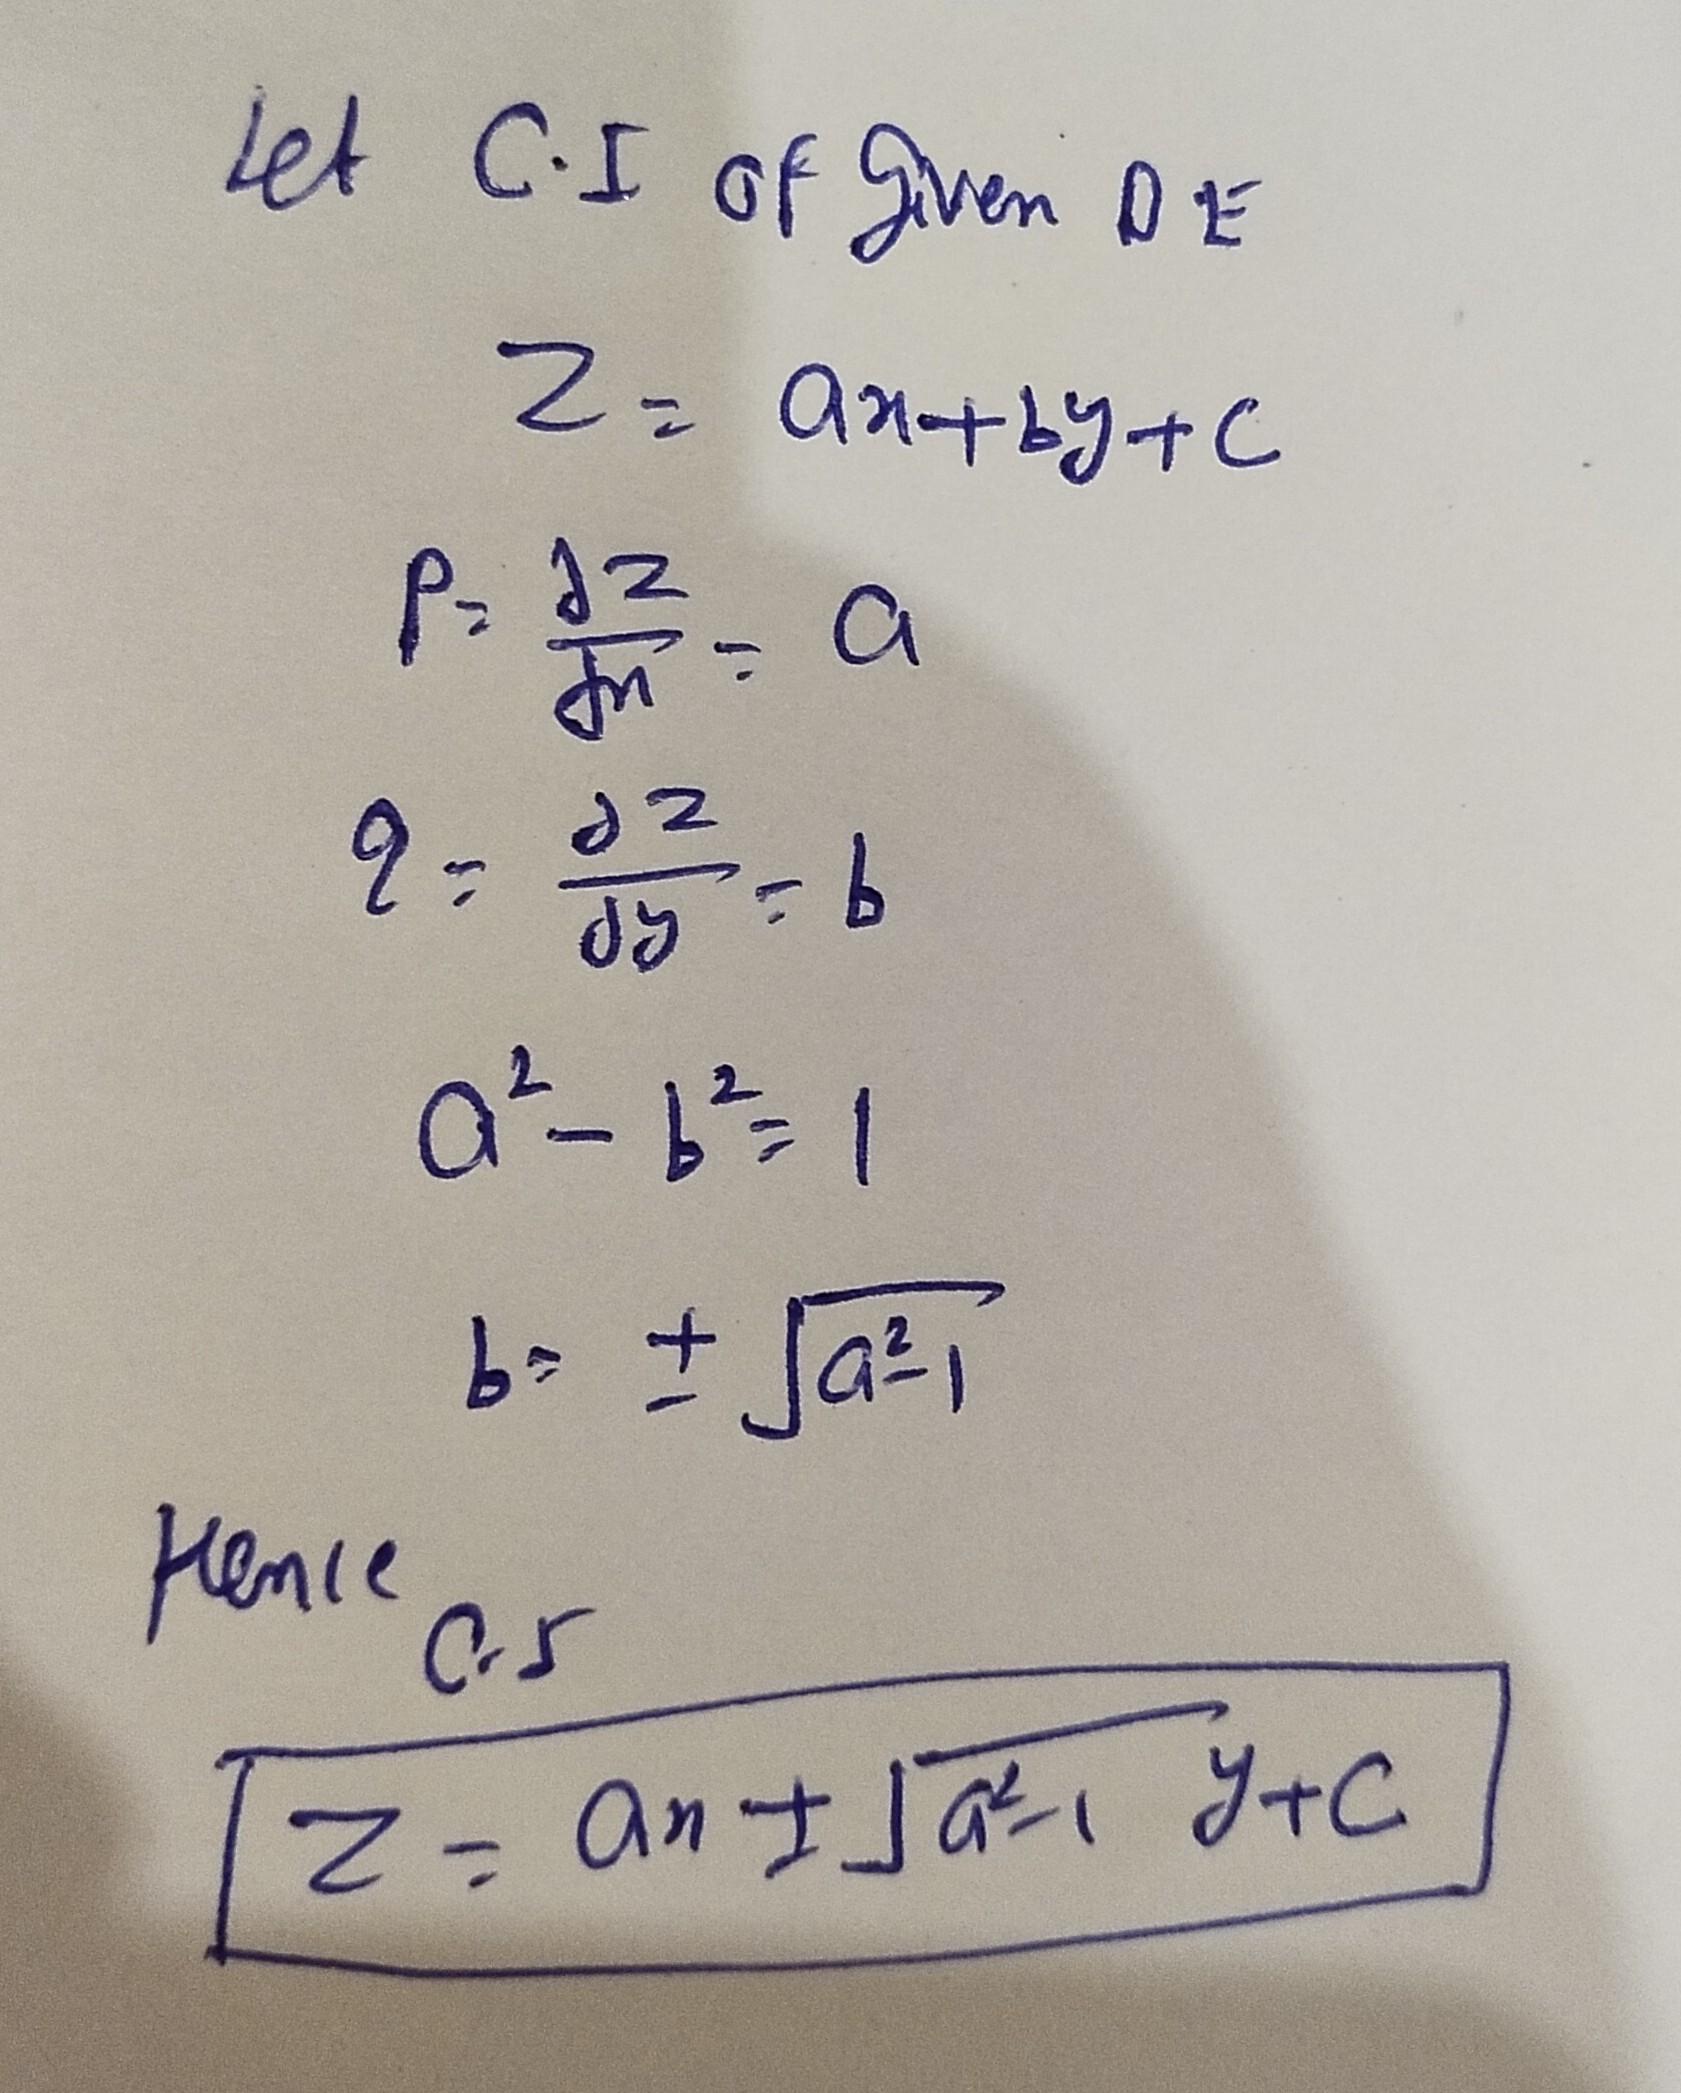 Let C.I of Given DE
Z = ax+by+c
P = ∂z/∂x = a
q = ∂z/∂y = b
a² - b² = 1
b = ± √a²-1
Hence
C.S
Z = ax ± √a²-1 y+C